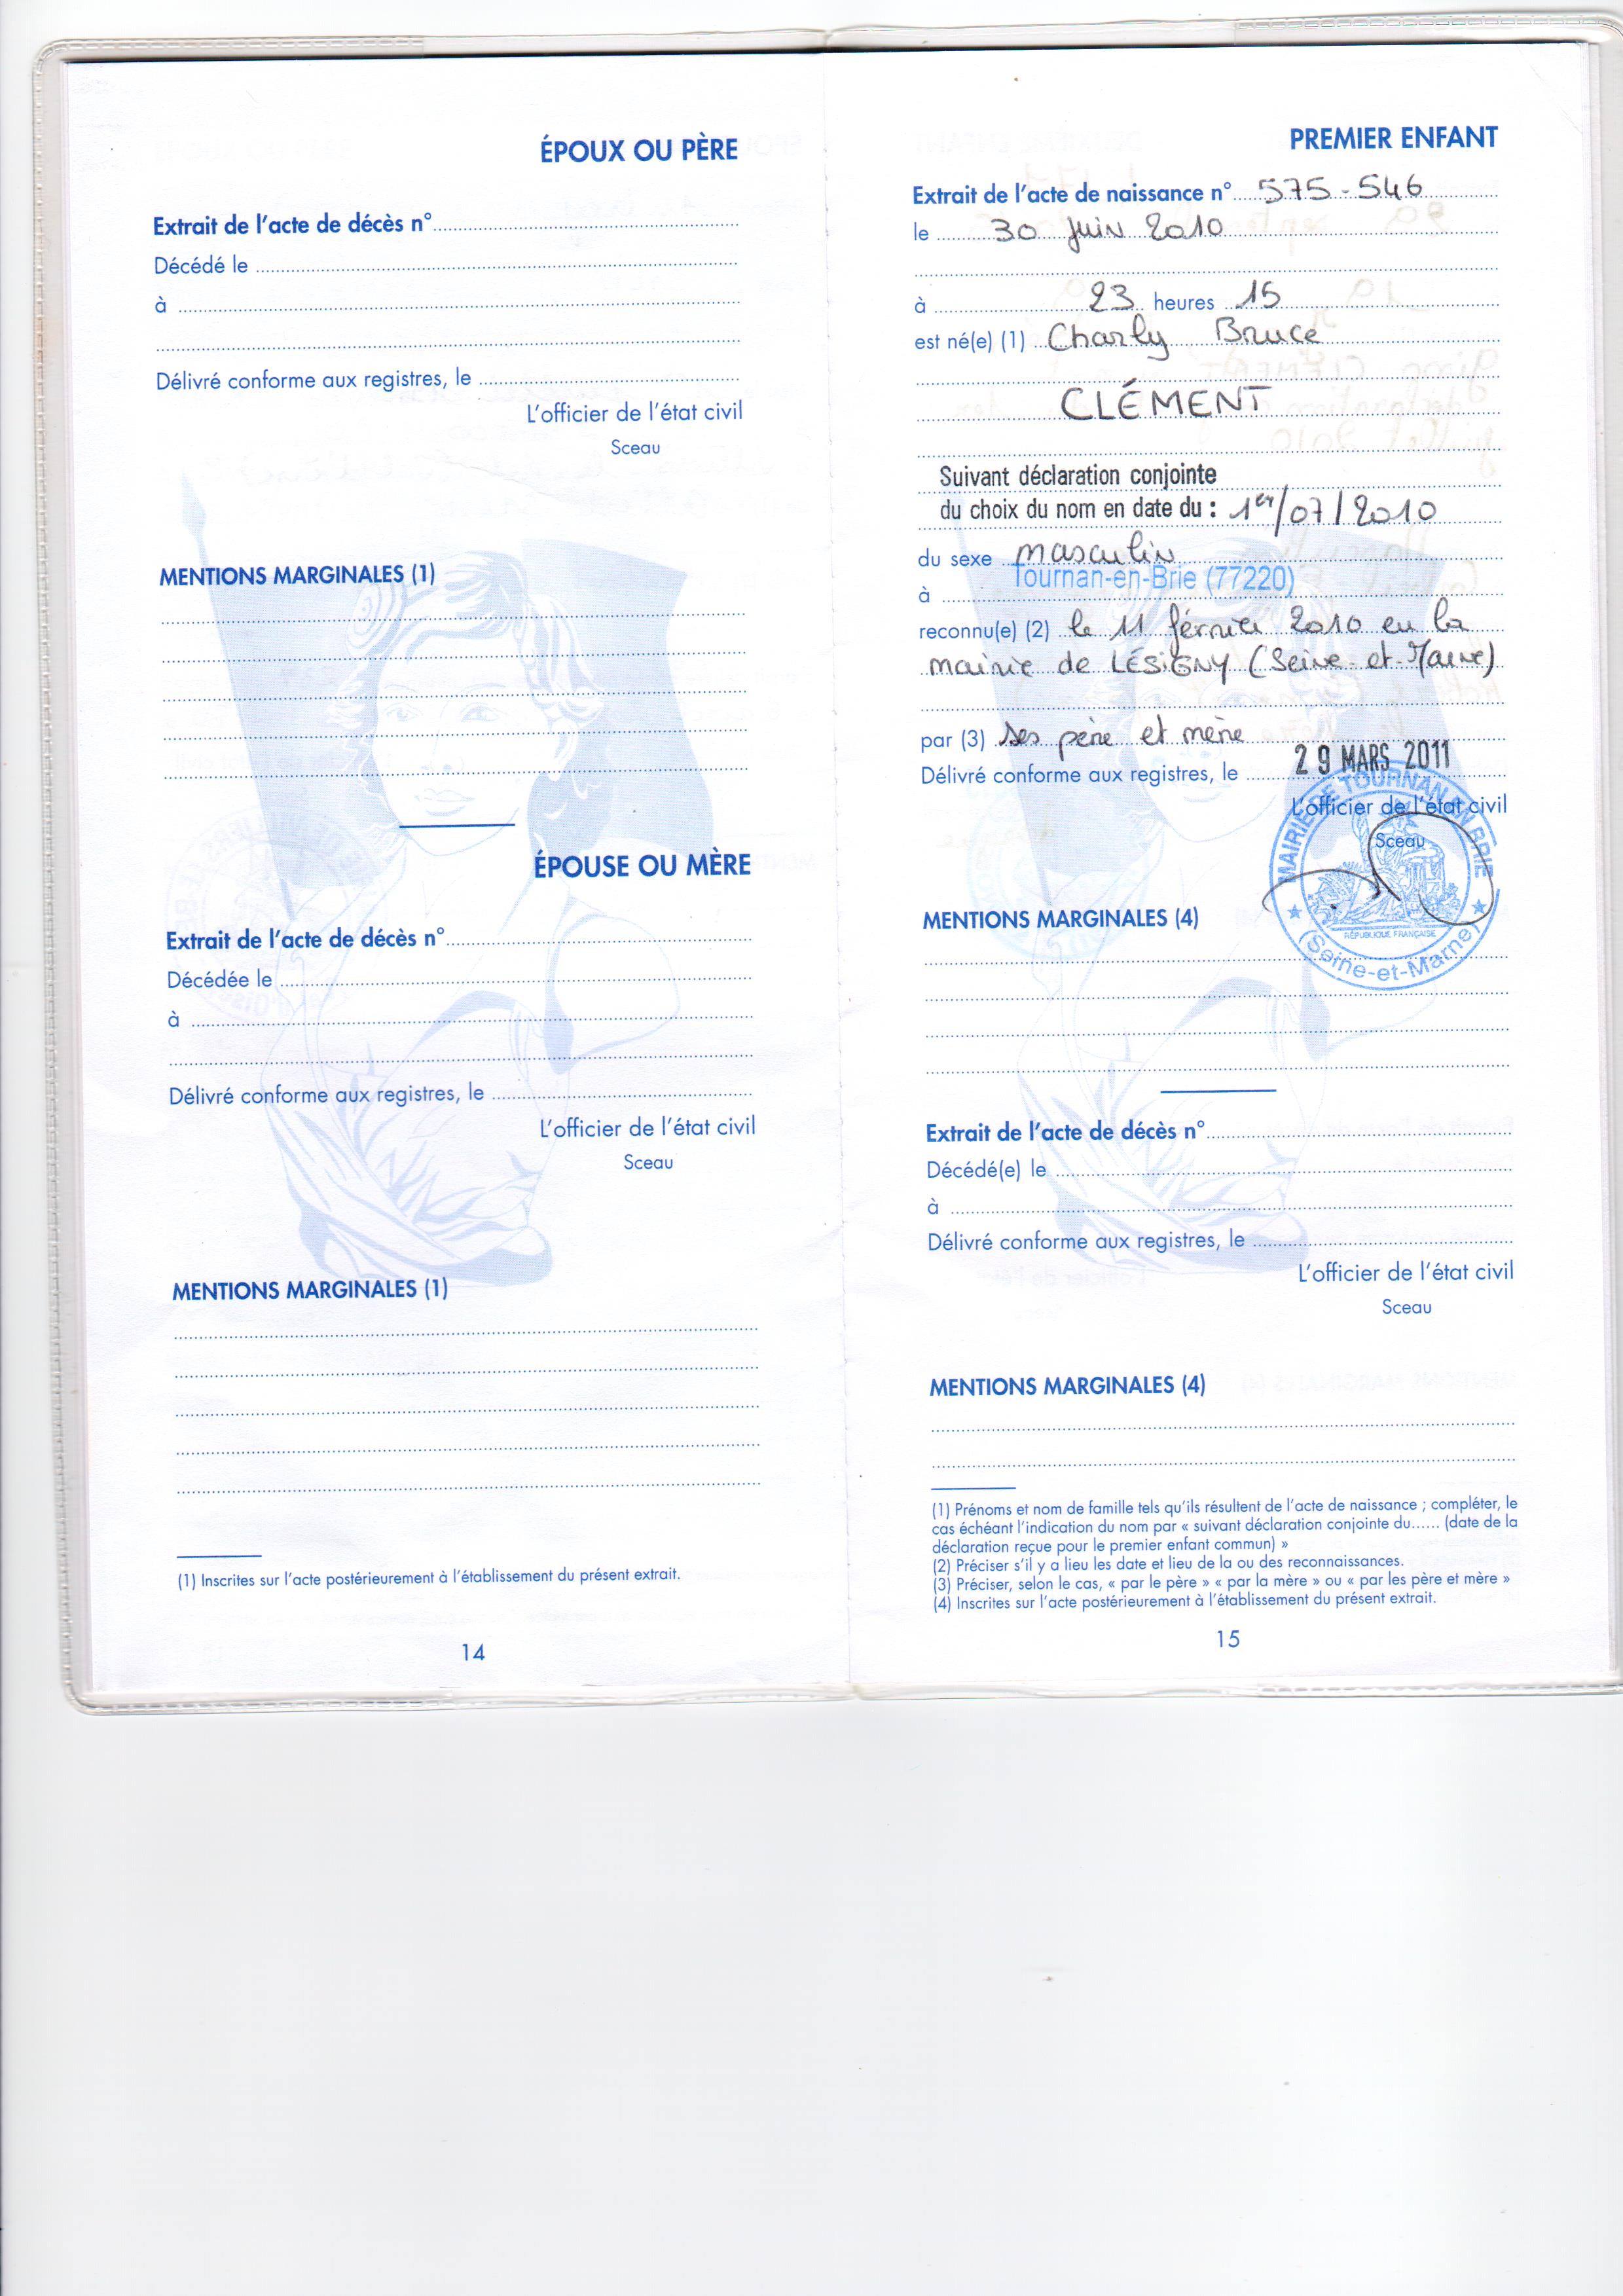 ÉPOUX OU PÈRE
Extrait de l'acte de décès n°
Décédé le
à
Délivré conforme aux registres, le
L'officier de l'état civil
Sceau
MENTIONS MARGINALES (1)
ÉPOUSE OU MÈRE
Extrait de l'acte de décès n°
Décédée le
à
Délivré conforme aux registres, le
L'officier de l'état civil
Sceau
MENTIONS MARGINALES (1)
(1) Inscrites sur l'acte postérieurement à l'établissement du présent extrait.
14
PREMIER ENFANT
Extrait de l'acte de naissance n° 575-546
le 30 juin 2010
à 23 heures 15
est né(e) (1) Charly Bruce
CLÉMENT
Suivant déclaration conjointe
du choix du nom en date du : 1er/07/2010
du sexe masculin
à Tournan-en-Brie (77220)
reconnu(e) (2) le 11 février 2010 en la
mairie de LÉSIGNY (Seine-et-Marne)
par (3) ses père et mère
Délivré conforme aux registres, le 29 MARS 2011
L'officier de l'état civil
Sceau
MAIRIE DE TOURNAN EN BRIE
RÉPUBLIQUE FRANÇAISE
(Seine-et-Marne)
MENTIONS MARGINALES (4)
Extrait de l'acte de décès n°
Décédé(e) le
à
Délivré conforme aux registres, le
L'officier de l'état civil
Sceau
MENTIONS MARGINALES (4)
(1) Prénoms et nom de famille tels qu'ils résultent de l'acte de naissance ; compléter, le
cas échéant l'indication du nom par « suivant déclaration conjointe du...... (date de la
déclaration reçue pour le premier enfant commun) »
(2) Préciser s'il y a lieu les date et lieu de la ou des reconnaissances.
(3) Préciser, selon le cas, « par le père » « par la mère » ou « par les père et mère »
(4) Inscrites sur l'acte postérieurement à l'établissement du présent extrait.
15